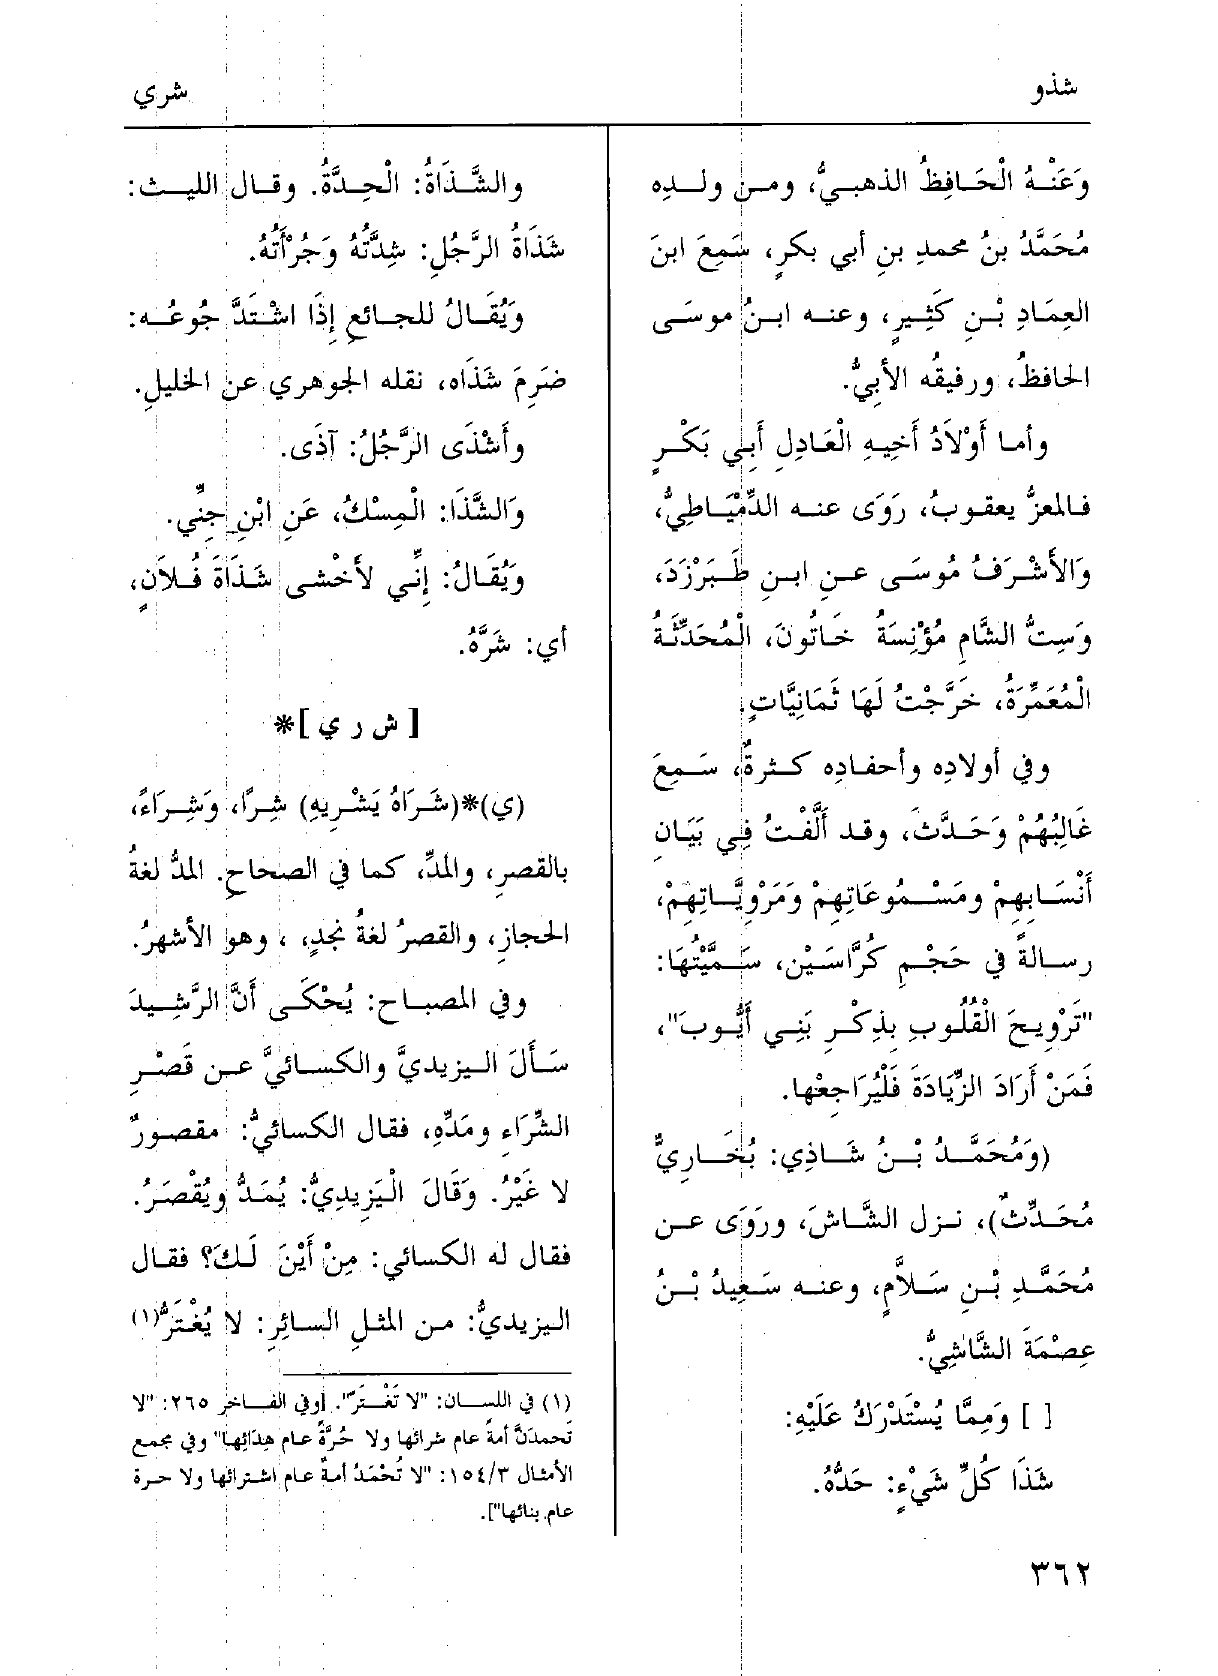 شذو
شري
وَعَنْهُ الْحَافِظُ الذهبيُّ، ومن ولده
مُحَمَّدُ بنُ محمدِ بنِ أبي بكرٍ، سَمِعَ ابنَ
العِمَادِ بْنِ كَثِيرٍ، وعنه ابنُ موسَى
الحافظُ، ورفيقُه الأَبيُّ.
وأما أَوْلاَدُ أَخِيهِ الْعَادِلِ أَبِي بَكْرٍ
فالمعزُّ يعقوبُ، رَوَى عنه الدِّمْيَاطِيُّ،
وَالأَشْرَفُ مُوسَى عنِ ابنِ طَبَرْزَدَ،
وَسِتُّ الشَّامِ مُؤْنِسَةُ خَاتُونَ، الْمُحَدِّثَةُ
الْمُعَمِّرَةُ، خَرَّجْتُ لَهَا ثَمَانِيَّاتٍ.
وفي أولادِه وأحفادِه كثرةٌ، سَمِعَ
غَالِبُهُمْ وَحَدَّثَ، وقد أَلَّفْتُ فِي بَيَانِ
أَنْسَابِهِمْ ومَسْمُوعَاتِهِمْ وَمَرْوِيَّاتِهِمْ،
رسالةً في حَجْمِ كُرَّاسَيْنِ، سَمَّيْتُهَا:
"تَرْوِيحَ الْقُلُوبِ بِذِكْرِ بَنِي أَيُّوبَ"،
فَمَنْ أَرَادَ الزِّيَادَةَ فَلْيُرَاجِعْها.
(وَمُحَمَّدُ بْنُ شَاذِي: بُخَارِيٌّ
مُحَدِّثٌ)، نزل الشَّاشَ، ورَوَى عن
مُحَمَّدِ بْنِ سَلاَّمٍ، وعنه سَعِيدُ بْنُ
عِصْمَةَ الشَّاشِيُّ.
[ ] وَمِمَّا يُسْتَدْرَكُ عَلَيْهِ:
شَذَا كُلِّ شَيْءٍ: حَدُّهُ.
والشَّذَاةُ: الْحِدَّةُ. وقال الليث:
شَذَاةُ الرَّجُلِ: شِدَّتُهُ وَجُرْأَتُهُ.
وَيُقَالُ للجائعِ إِذَا اشْتَدَّ جُوعُه:
ضَرِمَ شَذَاه، نقله الجوهري عن الخليلِ.
وأَشْذَى الرَّجُلُ: آذَى.
وَالشَّذَا: الْمِسْكُ، عَنِ ابْنِ جِنِّي.
وَيُقَالُ: إِنِّي لأَخْشى شَذَاةَ فُلاَنٍ،
أي: شَرَّهُ.
[ ش ر ي ]*
(ي)*(شَرَاهُ يَشْرِيهِ) شِرًا، وَشِرَاءً،
بالقصرِ، والمدِّ، كما في الصحاحِ. المدُّ لغةُ
الحجازِ، والقصرُ لغةُ نجدٍ، ، وهو الأشهرُ.
وفي المصباحِ: يُحْكَى أَنَّ الرَّشِيدَ
سَأَلَ اليزيديَّ والكسائيَّ عن قَصْرِ
الشِّرَاءِ ومَدِّهِ، فقال الكسائيُّ: مقصورٌ
لا غَيْرُ. وَقَالَ الْيَزِيدِيُّ: يُمَدُّ ويُقْصَرُ.
فقال له الكسائي: مِنْ أَيْنَ لَكَ؟ فقال
اليزيديُّ: من المثلِ السائِرِ: لا يُغْتَرُّ(١)
(١) في اللسان: "لا تَغْتَرَّ". [وفي الفاخر ٢٦٥: "لا
تَحمدَنَّ أمةً عام شرائها ولا حُرَّةً عام هِدَائِها" وفي مجمع
الأمثال ١٥٤/٣: "لا تُحْمَدُ أمةٌ عام اشترائها ولا حرة
عام بنائها"].
٣٦٢